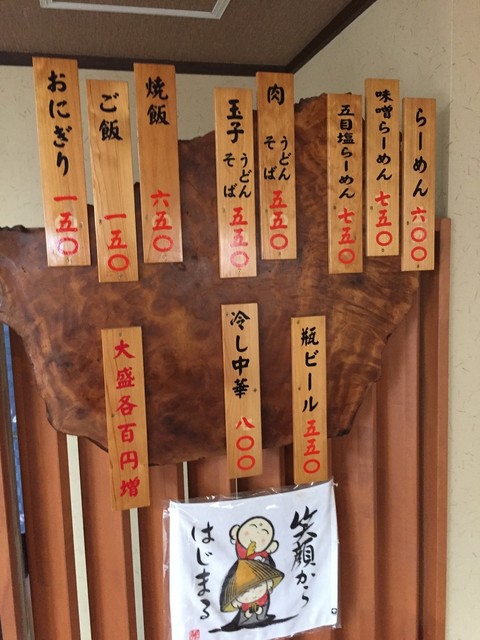 らーめん 六〇〇
味噌らーめん 七五〇
五目塩らーめん 七五〇
肉 うどん そば 五五〇
玉子 うどん そば 五五〇
焼飯 六五〇
ご飯 一五〇
おにぎり 一五〇
瓶ビール 五五〇
冷し中華 八〇〇
大盛各百円増
笑顔から
はじまる